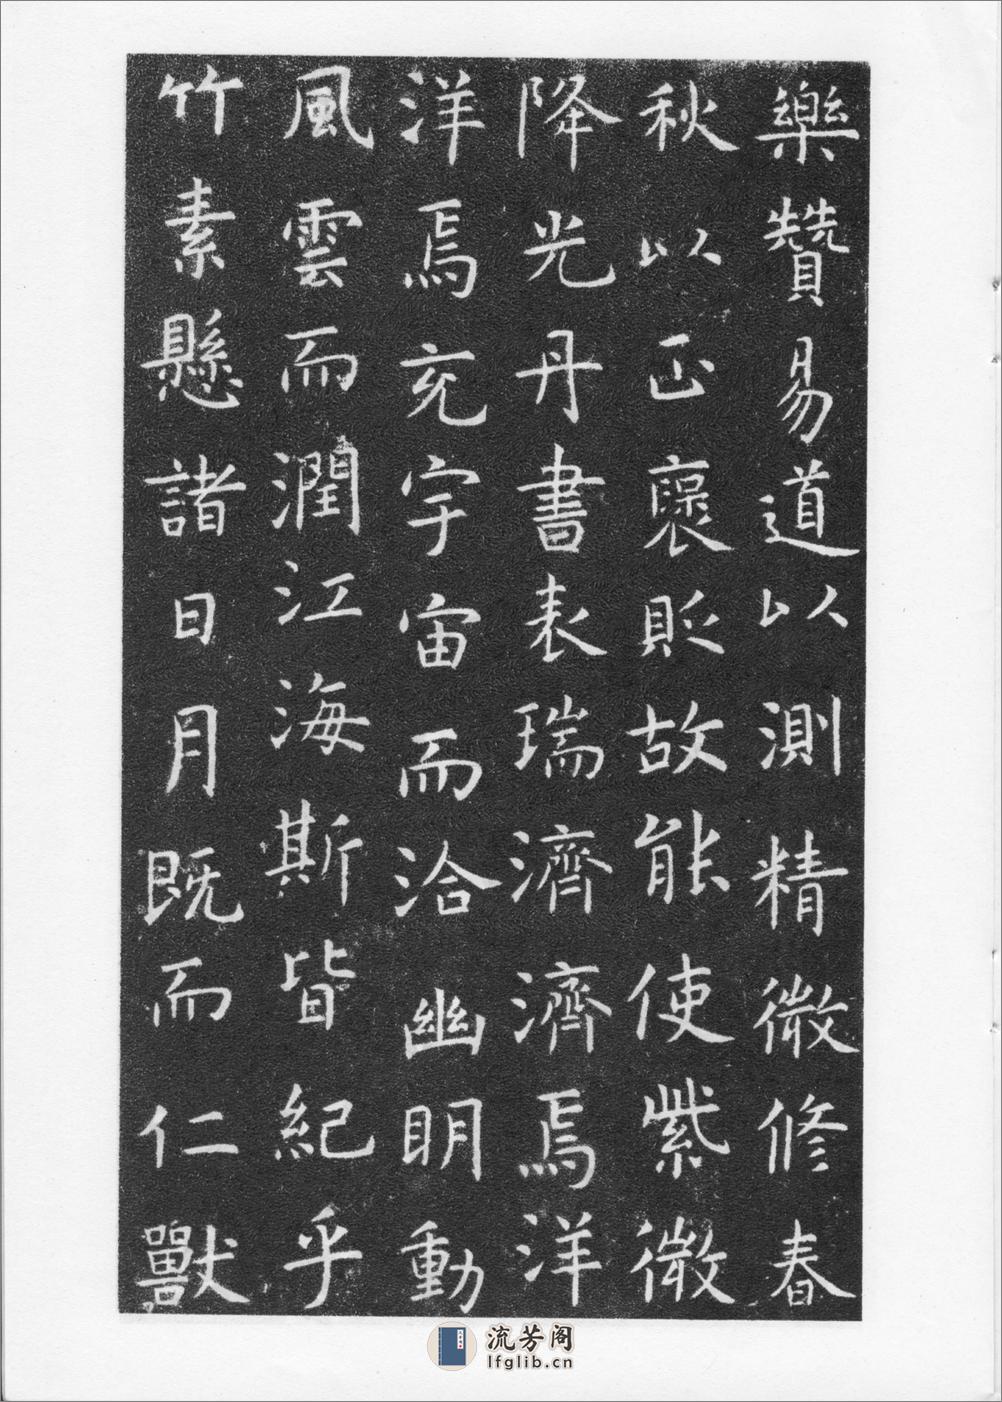 樂贊易道以測精微修春
秋以正褒貶故能使紫微
降光丹書表瑞濟濟焉洋
洋焉充宇宙而洽幽明動
風雲而潤江海斯皆紀乎
竹素懸諸日月既而仁獸
流芳阁
lfglib.cn